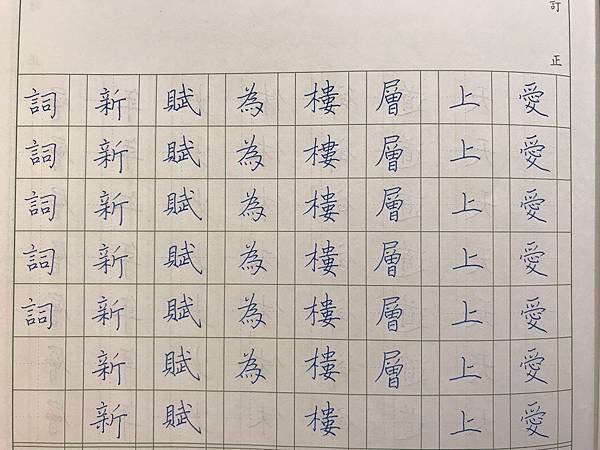 訂正
愛愛愛愛愛愛愛
上上上上上上上
層層層層層層
樓樓樓樓樓樓樓
為為為為為為
賦賦賦賦賦賦賦
新新新新新新新
詞詞詞詞詞